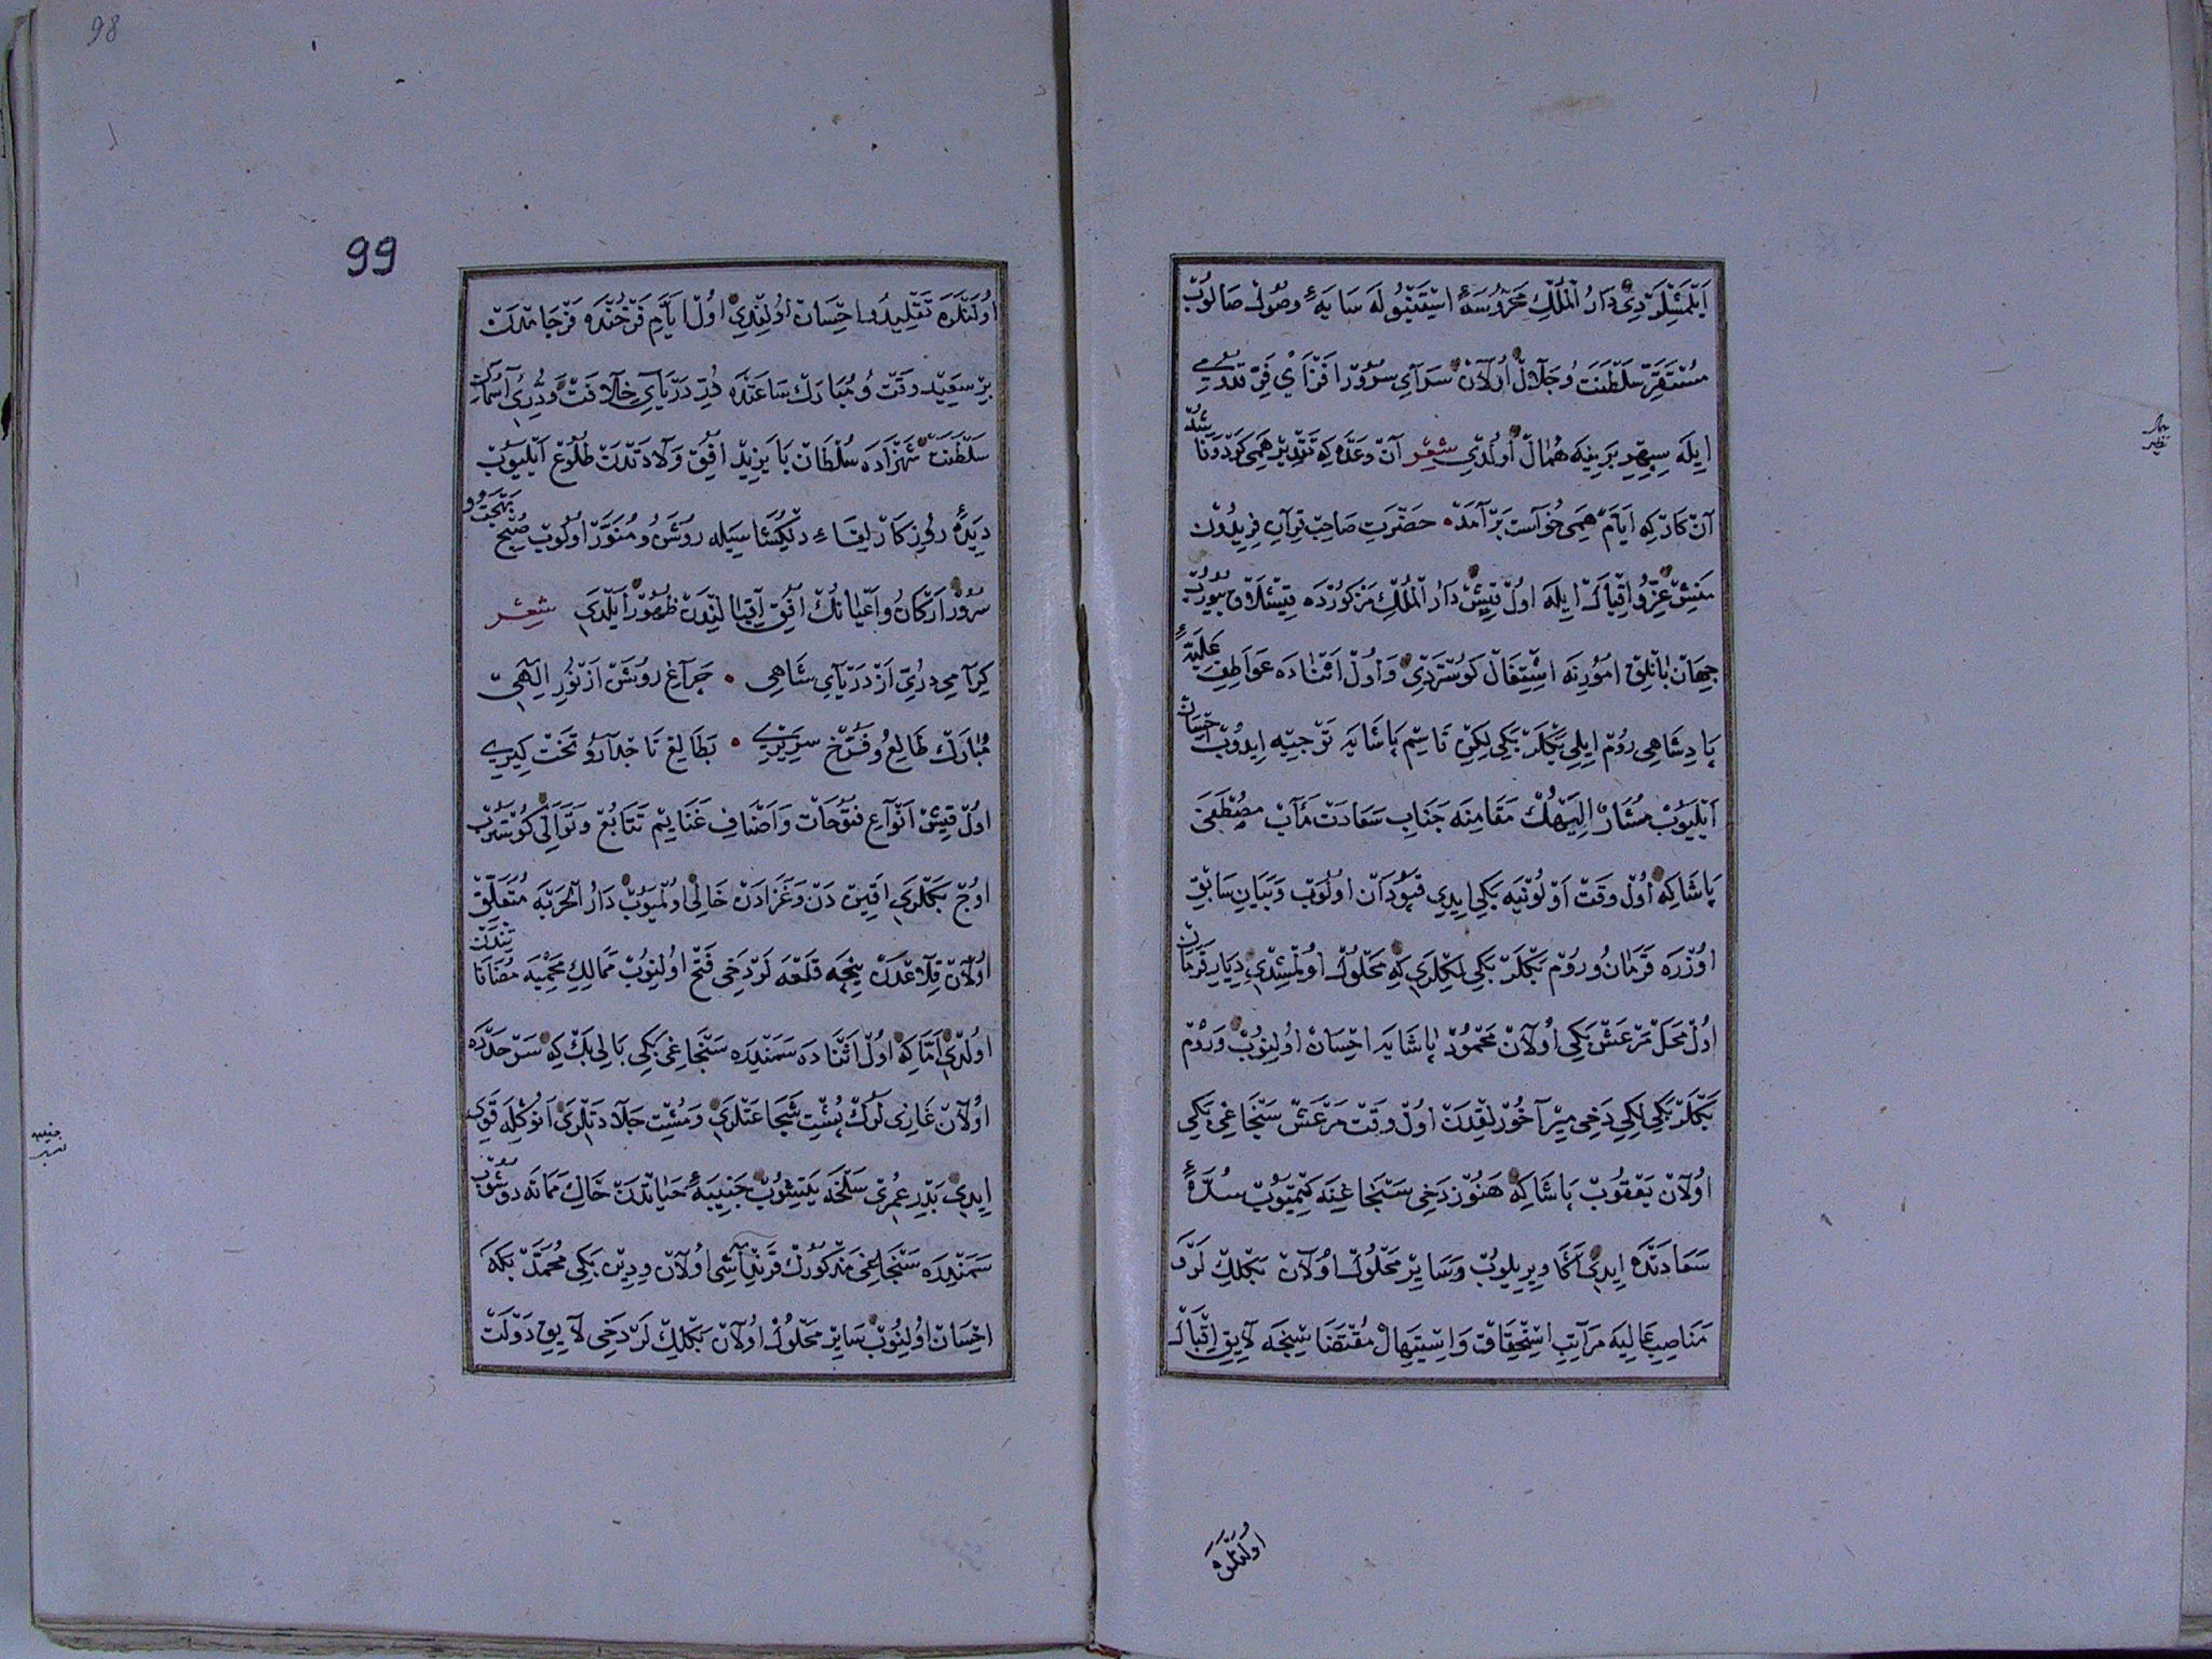 ايلمشلردى دار الملك محروسۀ استنبوله سايۀ وصول صالوب
مستقر سلطنت و جلال اولان سراى سرور افزاى فر قدومى
ايله سپهر برينه همال اولدى شعر آن وعده كه تقدير همى كرد وفا شد
آن كار كه ايام همى خواست بر آمد حضرت صاحب قران فريدون
منش عز و اقبال ايله اول قيش دار الملك مذكورده قيشلاق بيورب
جهانبانلق امورنه اشتغال كوستردى و اول اثناده عواطف عليۀ
پادشاهى روم ايلى بكلر بكى لكن قاسم پاشايه توجيه ايدوب احسان
ايليوب مشار اليهك مقامنه جناب سعادت مآب مصطفى
پاشا كه اول وقت اولونيه بكى ايدى قپودان اولوب و بيان سابق
اوزره قرمان و روم بكلر بكى لكلرى كه محلول اولمشدى ديار قرمان
اول محل مرعش بكى اولان محمود پاشايه احسان اولنوب و روم
بكلر بكى لكى دخى مير آخورلقدن اول وقت مرعش سنجاغى بكى
اولان يعقوب پاشا كه هنوز دخى سنجاغنه كتميوب سدۀ
سعادتده ايدى اكا ويريلوب و ساير محلول اولان بكلك لر و
مناصب عاليه مراتب استحقاق و استيهال مقتضا سنجه لايق اقبال
اولنلره
99
98
اولنلره تقليد و احسان اولندى اول ايام فرخنده فرجامدن
بر سعيد وقت و مبارك ساعتده در درياى خلافت و درى آسمان
سلطنت شهزاده سلطان بايزيد افق ولادتدن طلوع ايليوب
ديدۀ روزكار لقاء دلكشا سيله روشن و منور اولوب صبح بهجت و
سرور اركان و اعيانك افق اقبالندن ظهور ايلدى شعر
كرامى درى از درياى شاهى چراغ روشن از نور الهى
مبارك طالع و فرخ سريرى بطالع تاجدار و تخت كيرى
اول قيش انواع فتوحات و اصناف غنايم تتابع و توالى كوسترب
اوج بكلرى اقين دن و غزادن خالى اولميوب دار الحربه متعلق
اولان قلاعدن نيجه قلعه لر دخى فتح اولنوب ممالك محميه مضافا تندن
اولدى اما كه اول اثناده سمندره سنجاغى بكى بالى بك كه سرحدده
اولان غازى لرك پشت شجاعتلرى و مشت جلادتلرى انوكله قوى
ايدى بدر عمرى سلخه يتيشوب جنيبۀ حياتدن خاك مماته دوشوب
سمندره سنجاغى مذكورك قرنداشى اولان ودين بكى محمد بكه
احسان اولنوب ساير محلول اولان بكلك لر دخى لايق دولت